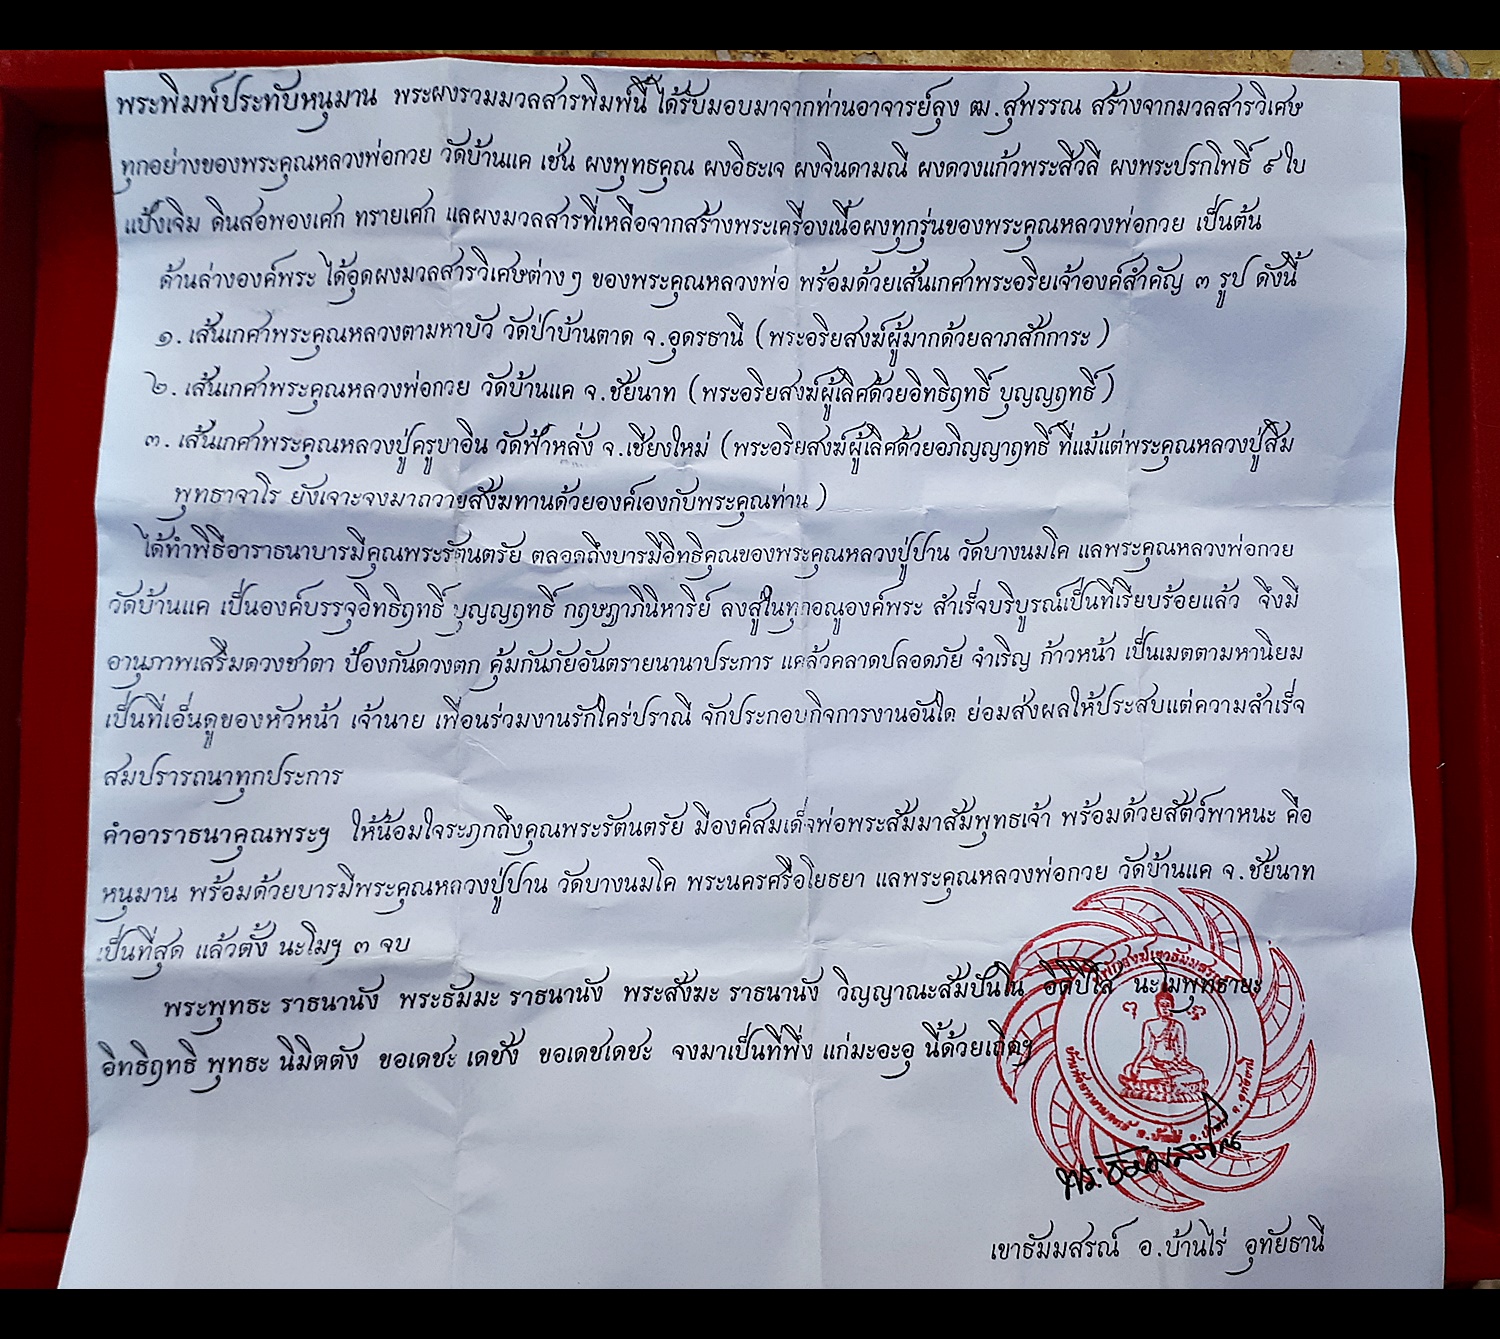 พระพิมพ์ประทับหนุมาน พระผงรวมมวลสารพิมพ์นี้ ได้รับมอบมาจากท่านอาจารย์ลุง ฒ.สุพรรณ สร้างจากมวลสารวิเศษ
ทุกอย่างของพระคุณหลวงพ่อกวย วัดบ้านแค เช่น ผงพุทธคุณ ผงอิธะเจ ผงจินดามณี ผงดวงแก้วพระสีวลี ผงพระปรกโพธิ์ ๙ ใบ
แป้งเจิม ดินสอพองเศก ทรายเศก แลผงมวลสารที่เหลือจากสร้างพระเครื่องเนื้อผงทุกรุ่นของพระคุณหลวงพ่อกวย เป็นต้น
ด้านล่างองค์พระ ได้อุดผงมวลสารวิเศษต่างๆ ของพระคุณหลวงพ่อ พร้อมด้วยเส้นเกศาพระอริยเจ้าองค์สำคัญ ๓ รูป ดังนี้
๑. เส้นเกศาพระคุณหลวงตามหาบัว วัดป่าบ้านตาด จ.อุดรธานี (พระอริยสงฆ์ผู้มากด้วยลาภสักการะ)
๒. เส้นเกศาพระคุณหลวงพ่อกวย วัดบ้านแค จ.ชัยนาท (พระอริยสงฆ์ผู้เลิศด้วยอิทธิฤทธิ์ บุญญฤทธิ์)
๓. เส้นเกศาพระคุณหลวงปู่ครูบาอิน วัดฟ้าหลั่ง จ.เชียงใหม่ (พระอริยสงฆ์ผู้เลิศด้วยอภิญญาฤทธิ์ ที่แม้แต่พระคุณหลวงปู่สิม
พุทธาจาโร ยังเจาะจงมาถวายสังฆทานด้วยองค์เองกับพระคุณท่าน)
ได้ทำพิธีอาราธนาบารมีคุณพระรัตนตรัย ตลอดถึงบารมีอิทธิคุณของพระคุณหลวงปู่ปาน วัดบางนมโค แลพระคุณหลวงพ่อกวย
วัดบ้านแค เป็นองค์บรรจุอิทธิฤทธิ์ บุญญฤทธิ์ กฤษฎาภินิหาริย์ ลงสู่ในทุกอณูองค์พระ สำเร็จบริบูรณ์เป็นที่เรียบร้อยแล้ว จึงมี
อานุภาพเสริมดวงชาตา ป้องกันดวงตก คุ้มกันภัยอันตรายนานาประการ แคล้วคลาดปลอดภัย จำเริญ ก้าวหน้า เป็นเมตตามหานิยม
เป็นที่เอ็นดูของหัวหน้า เจ้านาย เพื่อนร่วมงานรักใคร่ปราณี จักประกอบกิจการงานอันใด ย่อมส่งผลให้ประสบแต่ความสำเร็จ
สมปรารถนาทุกประการ
คำอาราธนาคุณพระฯ ให้น้อมใจระฦกถึงคุณพระรัตนตรัย มีองค์สมเด็จพ่อพระสัมมาสัมพุทธเจ้า พร้อมด้วยสัตว์พาหนะ คือ
หนุมาน พร้อมด้วยบารมีพระคุณหลวงปู่ปาน วัดบางนมโค พระนครศรีอโยธยา แลพระคุณหลวงพ่อกวย วัดบ้านแค จ.ชัยนาท
เป็นที่สุด แล้วตั้ง นะโมฯ ๓ จบ
พระพุทธะ ราธนานัง พระธัมมะ ราธนานัง พระสังฆะ ราธนานัง วิญญาณะสัมปันโน อิติปิโส นะโมพุทธายะ
อิทธิฤทธิ พุทธะ นิมิตตัง ขอเดชะ เดชัง ขอเดชเดชะ จงมาเป็นที่พึ่ง แก่มะอะอุ นี้ด้วยเถิดฯ
พระธัมมสรณ์
เขาธัมมสรณ์ อ.บ้านไร่ อุทัยธานี